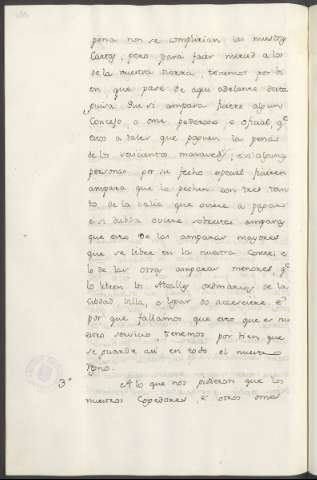 pena non se complirian las nuestras
Cartas, pero para facer merced a los
de la nuestra tierra, tenemos por bi
en, que pase de aqui adelante desta
guisa. Que si ampara ficiere algun
Concejo, o ome poderoso o oficial, q.e
esto a saber que paguen la pena
de los seiscientos maravedis, e si algunas
personas por su fecho especial ficieren
ampara que la pechen con tres tan
to, de la valia que oviere a pagar
e si dubda oviere sobre esta ampara
que esto de las amparas mayores
que se libre en la nuestra Corte; e
lo de las otras amparas menores, q.e
lo libren los Alcalles ordinarios de la
Cibdad Villa, o logar do acaesciere, e
por que fallamos que esto que es nu
estro servicio, tenemos por bien que
se guarde asi en todo el nuestro
regno.
3.º A lo que nos pidieron que los
nuestros Cogedores, e otros omes